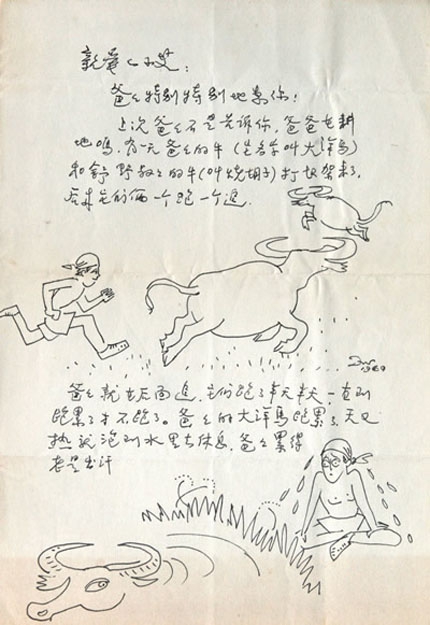 亲爱的小艾:
爸爸特别特别地想你!
上次爸爸不是告诉你,爸爸在耕
地吗,有一天爸爸的牛(它名字叫大洋马)
和舒野叔叔的牛(叫烧胡子)打起架来了,
后来它们俩一个跑一个追.
1969
爸爸就在后面追,它们跑了半天半天一直到
跑累了才不跑了。爸爸的大洋马跑累了,天又
热就泡到水里去休息,爸爸累得
老是出汗